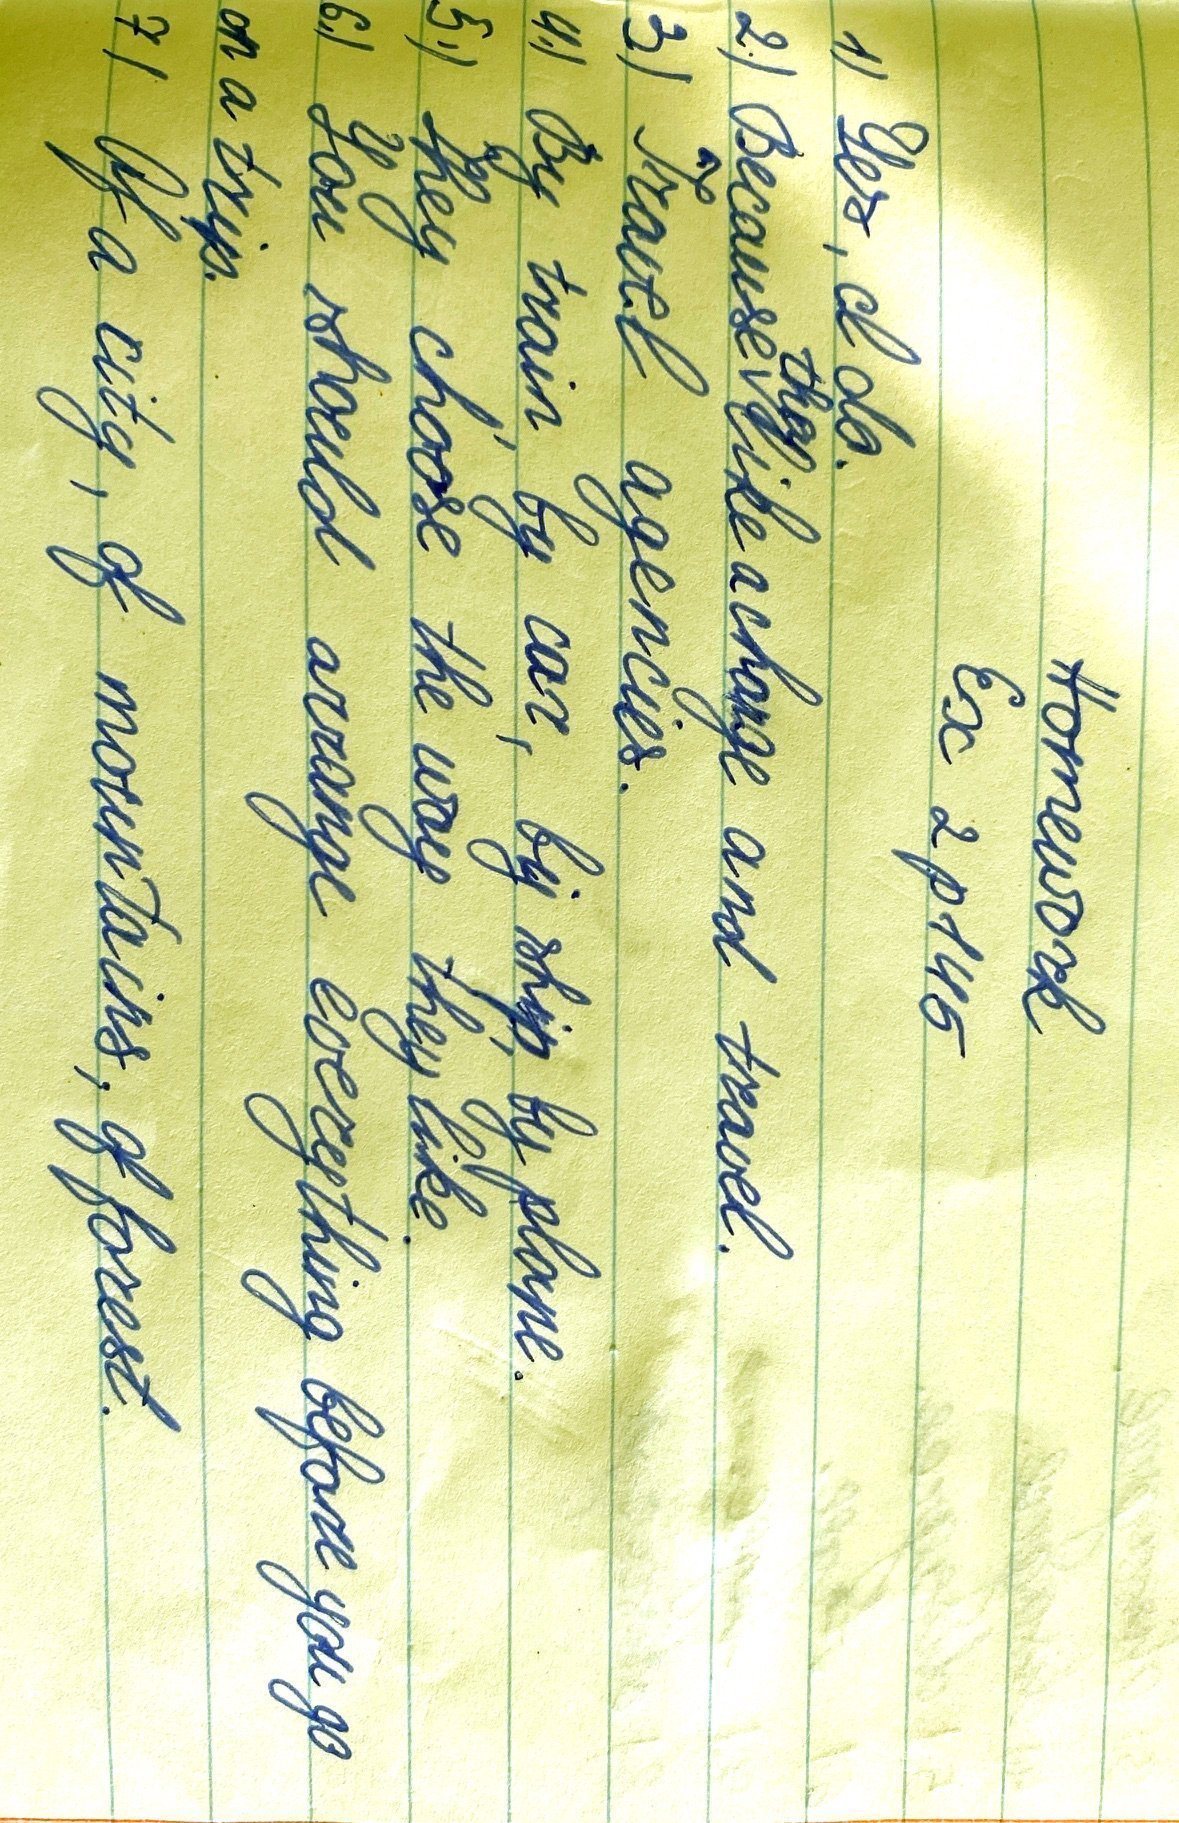 Homework
Ex 2 p 145
1) Yes, I do.
2) Because they like a change and travel.
3) Travel agencies.
4.) By train, by car, by ship, by plane.
5.) They choose the way they like.
6.) You should arrange everything before you go
on a trip.
7.) Of a city, of mountains, of forest.